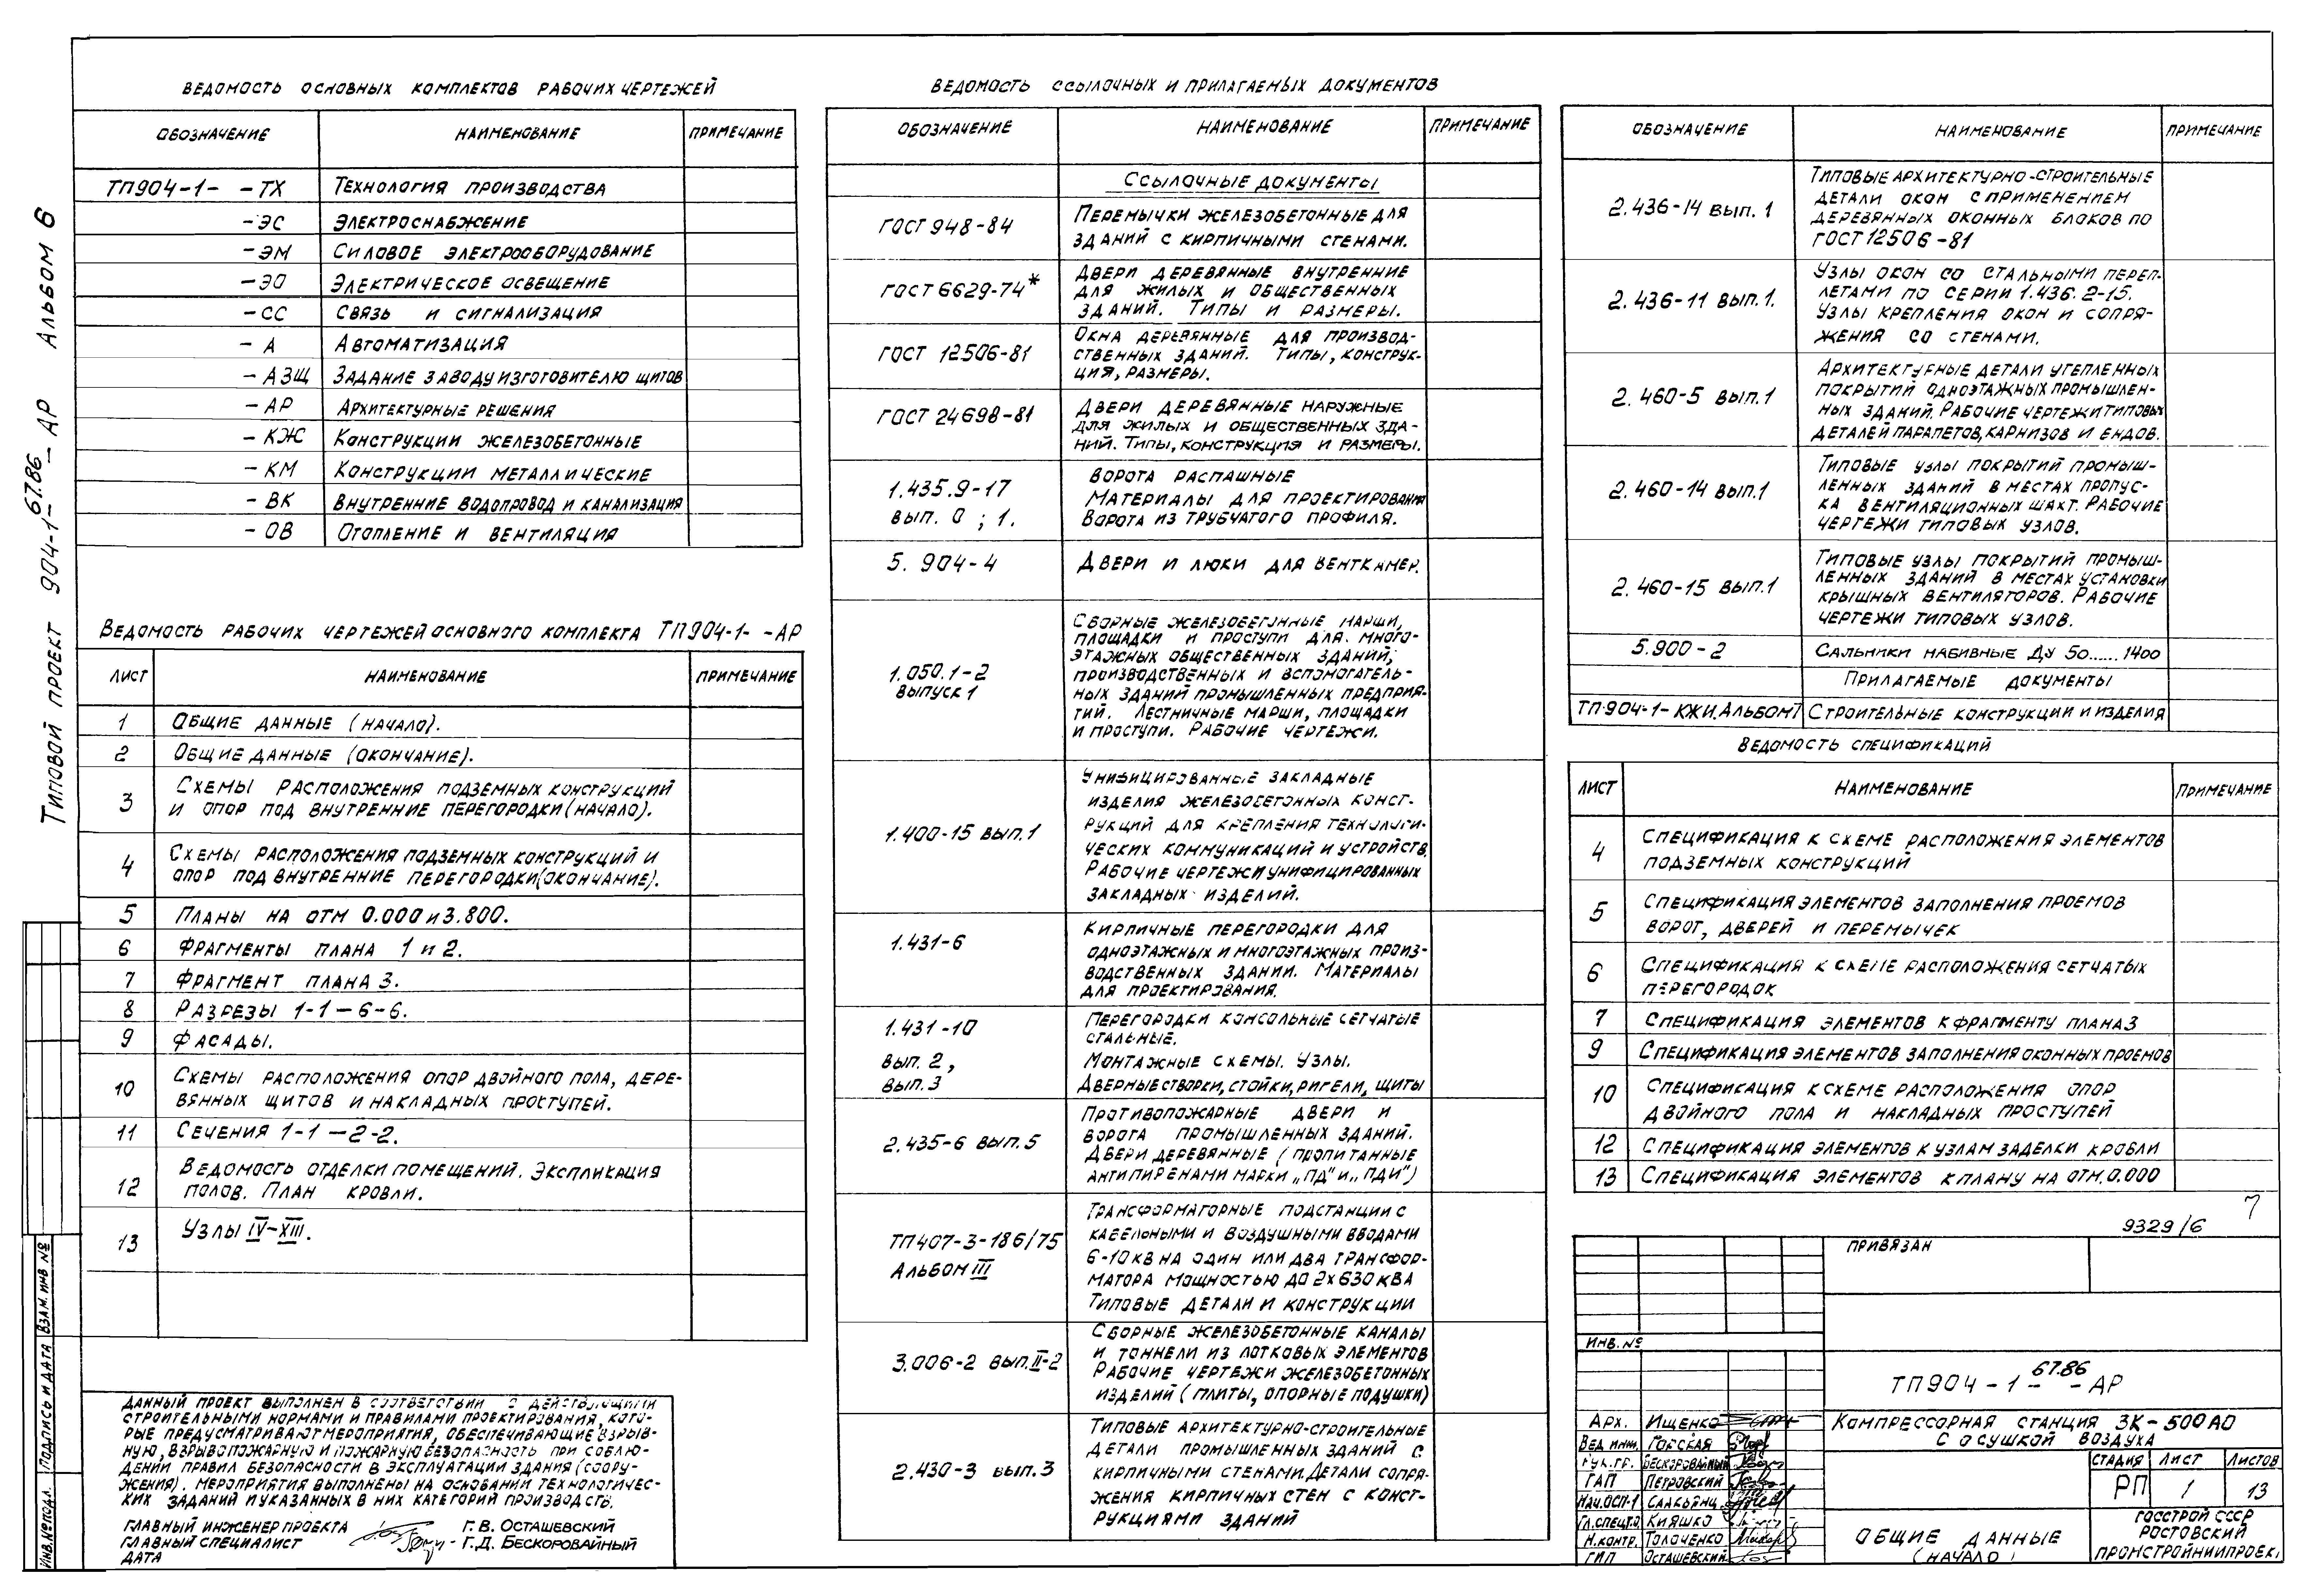 Типовой проект 904-1-67.86-АР Альбом 6
Ведомость основных комплектов рабочих чертежей
Обозначение Наименование Примечание
ТП904-1- -ТХ Технология производства
-ЭС Электроснабжение
-ЭМ Силовое электрооборудование
-ЭО Электрическое освещение
-СС Связь и сигнализация
-А Автоматизация
-АЗЩ Задание заводу изготовителю щитов
-АР Архитектурные решения
-КЖ Конструкции железобетонные
-КМ Конструкции металлические
-ВК Внутренние водопровод и канализация
-ОВ Отопление и вентиляция
Ведомость рабочих чертежей основного комплекта ТП904-1- -АР
Лист Наименование Примечание
1 Общие данные (начало).
2 Общие данные (окончание).
3 Схемы расположения подземных конструкций
и опор под внутренние перегородки (начало).
4 Схемы расположения подземных конструкций и
опор под внутренние перегородки (окончание).
5 Планы на отм 0.000 и 3.800.
6 Фрагменты плана 1 и 2.
7 Фрагмент плана 3.
8 Разрезы 1-1 — 6-6.
9 Фасады.
10 Схемы расположения опор двойного пола, дере-
вянных щитов и накладных проступей.
11 Сечения 1-1 — 2-2.
12 Ведомость отделки помещений. Экспликация
полов. План кровли.
13 Узлы IV-XIII.
Данный проект выполнен в соответствии с действующими
строительными нормами и правилами проектирования, кото-
рые предусматривают мероприятия, обеспечивающие взрыв-
ную, взрывопожарную и пожарную безопасность при соблю-
дении правил безопасности в эксплуатации здания (соору-
жения). Мероприятия выполнены на основании технологичес-
ких заданий и указанных в них категорий производств.
Главный инженер проекта Г.В. Осташевский
Главный специалист Г.Д. Бескоровайный
Дата
Ведомость ссылочных и прилагаемых документов
Обозначение Наименование Примечание
Ссылочные документы
ГОСТ 948-84 Перемычки железобетонные для
зданий с кирпичными стенами.
ГОСТ 6629-74* Двери деревянные внутренние
для жилых и общественных
зданий. Типы и размеры.
ГОСТ 12506-81 Окна деревянные для производ-
ственных зданий. Типы, конструк-
ция, размеры.
ГОСТ 24698-81 Двери деревянные наружные
для жилых и общественных зда-
ний. Типы, конструкция и размеры.
1.435.9-17 Ворота распашные
вып. 0; 1. Материалы для проектирования
Ворота из трубчатого профиля.
5.904-4 Двери и люки для венткамер.
1.050.1-2 выпуск 1 Сборные железобетонные марши,
площадки и проступи для много-
этажных общественных зданий,
производственных и вспомогатель-
ных зданий промышленных предприя-
тий. Лестничные марши, площадки
и проступи. Рабочие чертежи.
1.400-15 вып.1 Унифицированные закладные
изделия железобетонных конст-
рукций для крепления технологи-
ческих коммуникаций и устройств.
Рабочие чертежи унифицированных
закладных изделий.
1.431-6 Кирпичные перегородки для
одноэтажных и многоэтажных произ-
водственных зданий. Материалы
для проектирования.
1.431-10 Перегородки консольные сетчатые
стальные.
вып. 2, Монтажные схемы. Узлы.
вып. 3 Дверные створки, стойки, ригели, щиты
2.435-6 вып.5 Противопожарные двери и
ворота промышленных зданий.
Двери деревянные (пропитанные
антипиренами марки „ПД" и „ПДИ")
ТП407-3-186/75 Альбом III Трансформаторные подстанции с
кабельными и воздушными вводами
6-10кв на один или два трансфор-
матора мощностью до 2х630 ква
Типовые детали и конструкции
3.006-2 вып.II-2 Сборные железобетонные каналы
и тоннели из лотковых элементов
Рабочие чертежи железобетонных
изделий (плиты, опорные подушки)
2.430-3 вып.3 Типовые архитектурно-строительные
детали промышленных зданий с
кирпичными стенами. Детали сопря-
жения кирпичных стен с конст-
рукциями зданий
Обозначение Наименование Примечание
2.436-14 вып.1 Типовые архитектурно-строительные
детали окон с применением
деревянных оконных блоков по
ГОСТ 12506-81
2.436-11 вып.1. Узлы окон со стальными переп-
летами по серии 1.436.2-15.
Узлы крепления окон и сопря-
жения со стенами.
2.460-5 вып.1 Архитектурные детали утепленных
покрытий одноэтажных промышлен-
ных зданий. Рабочие чертежи типовых
деталей парапетов, карнизов и ендов.
2.460-14 вып.1 Типовые узлы покрытий промыш-
ленных зданий в местах пропус-
ка вентиляционных шахт. Рабочие
чертежи типовых узлов.
2.460-15 вып.1 Типовые узлы покрытий промыш-
ленных зданий в местах установки
крышных вентиляторов. Рабочие
чертежи типовых узлов.
5.900-2 Сальники набивные Ду 50......1400
Прилагаемые документы
ТП.904-1- КЖИ. Альбом 7 Строительные конструкции и изделия
Ведомость спецификаций
Лист Наименование Примечание
4 Спецификация к схеме расположения элементов
подземных конструкций
5 Спецификация элементов заполнения проемов
ворот, дверей и перемычек
6 Спецификация к схеме расположения сетчатых
перегородок
7 Спецификация элементов к фрагменту плана 3
9 Спецификация элементов заполнения оконных проемов
10 Спецификация к схеме расположения опор
двойного пола и накладных проступей
12 Спецификация элементов к узлам заделки кровли
13 Спецификация элементов к плану на отм. 0.000
7
9329/6
Привязан
Инв. №
ТП904-1-67.86-АР
Арх. Ищенко
Вед инж. Горская
Рук.гр. Бескоровайный
ГАП Петровский
Нач.ОСП-1
Гл.спец.то Кияшко
Н.контр. Толоченко
ГИП Осташевский
Компрессорная станция 3К-500АО
с осушкой воздуха
Стадия Лист Листов
РП 1 13
Общие данные
(начало)
Госстрой СССР
Ростовский
Промстройниипроект
Взам. инв №
Подпись и дата
Инв. № подл.